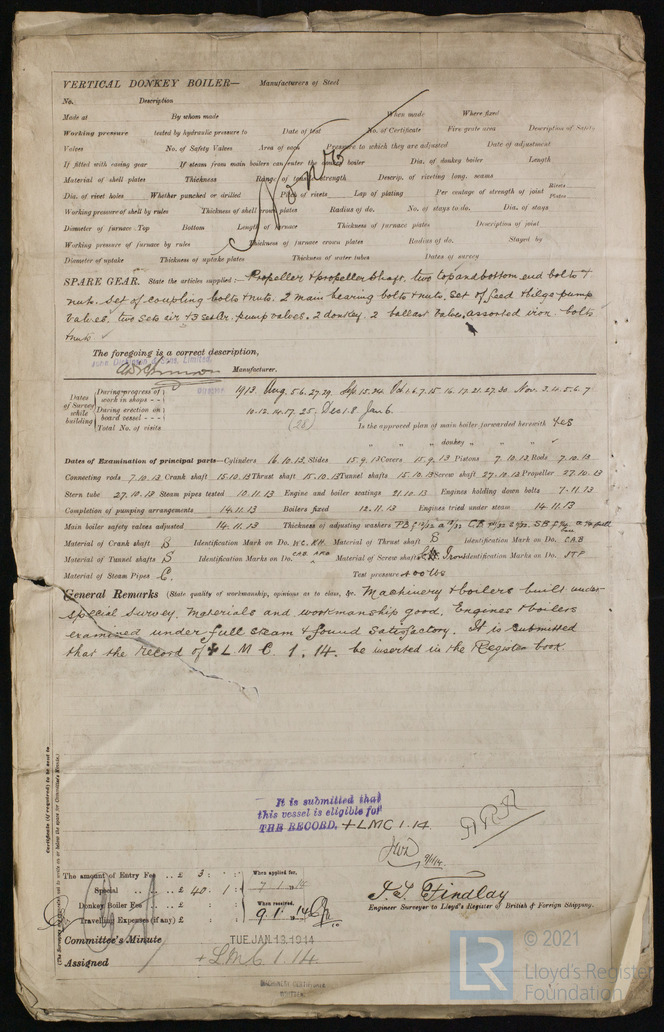 VERTICAL DONKEY BOILER— Manufacturers of Steel
No. Description
Made at By whom made When made Where fixed
Working pressure tested by hydraulic pressure to Date of test No. of Certificate Fire grate area Description of Safety
Valves No. of Safety Valves Area of each Pressure to which they are adjusted Date of adjustment
If fitted with easing gear If steam from main boilers can enter the donkey boiler Dia. of donkey boiler Length
Material of shell plates Thickness Range of tensile strength Descrip. of riveting long. seams
Dia. of rivet holes Whether punched or drilled Pitch of rivets Lap of plating Per centage of strength of joint Rivets Plates
Working pressure of shell by rules Thickness of shell crown plates Radius of do. No. of stays to do. Dia. of stays
Diameter of furnace Top Bottom Length of furnace Thickness of furnace plates Description of joint
Working pressure of furnace by rules Thickness of furnace crown plates Radius of do. Stayed by
Diameter of uptake Thickness of uptake plates Thickness of water tubes Dates of survey
None
SPARE GEAR. State the articles supplied:— Propeller & propeller shaft, two top and bottom end bolts &
nuts. Set of coupling bolts & nuts. 2 main bearing bolts & nuts. Set of feed & bilge pump
valves, two sets air & 3 set Cr. pump valves. 2 donkey. 2 ballast valves, assorted iron bolts
& nuts
The foregoing is a correct description,
John Dickinson & Sons, Limited,
Manufacturer.
Dates of Survey while building
During progress of work in shops - - 1913 Aug. 5. 6. 27. 29. Sep 15. 24. Oct 1. 6. 7. 15. 16. 17. 21. 27. 30. Nov. 3. 4. 5. 6. 7
During erection on board vessel - - - 10. 12. 14. 17. 25. Dec 1. 8. Jan 6.
Total No. of visits (28) Is the approved plan of main boiler forwarded herewith Yes
" " " donkey " " "
Dates of Examination of principal parts—Cylinders 16.10.13. Slides 15.9.13 Covers 15.9.13 Pistons 7.10.13 Rods 7.10.13
Connecting rods 7.10.13 Crank shaft 15.10.13 Thrust shaft 15.10.13 Tunnel shafts 15.10.13 Screw shaft 27.10.13 Propeller 27.10.13
Stern tube 27.10.13 Steam pipes tested 10.11.13 Engine and boiler seatings 21.10.13 Engines holding down bolts 7.11.13
Completion of pumping arrangements 14.11.13 Boilers fixed 12.11.13 Engines tried under steam 14.11.13
Main boiler safety valves adjusted 14.11.13 Thickness of adjusting washers
Material of Crank shaft S Identification Mark on Do. Material of Thrust shaft S Identification Mark on Do. CAB
Material of Tunnel shafts S Identification Marks on Do. Material of Screw shafts Iron Identification Marks on Do. JTF
Material of Steam Pipes C. Test pressure 400 lbs
General Remarks (State quality of workmanship, opinions as to class, &c. Machinery & boilers built under
special survey. Materials and workmanship good. Engines & boilers
examined under full steam & found satisfactory. It is submitted
that the record of + L M C. 1. 14. be inserted in the Register book.
Certificate (if required) to be sent to
(The Surveyors are requested not to write on or below the space for Committee's Minute.)
It is submitted that
this vessel is eligible for
THE RECORD. + LMC 1.14.
9/1/14.
The amount of Entry Fee .. £ 3 : : When applied for,
Special .. £ 40 . 1 : 7.1.1914
Donkey Boiler Fee .. £ : : When received,
Travelling Expenses (if any) £ : : 9.1.1914
J. T. Findlay
Engineer Surveyor to Lloyd's Register of British & Foreign Shipping.
Committee's Minute TUE. JAN. 13. 1914
Assigned + LMC 1.14
MACHINERY CERTIFICATE
WRITTEN.
LR © 2021
Lloyd's Register
Foundation